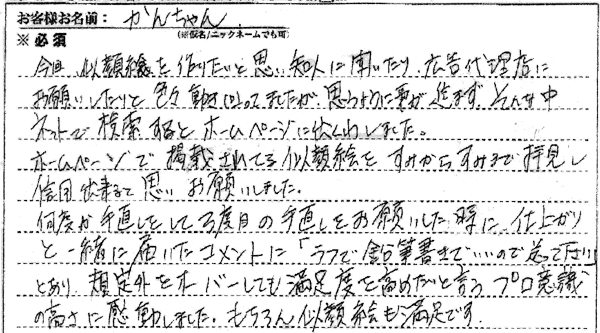 お客様お名前： かんちゃん
（※仮名/ニックネームでも可）
※必須
今回 似顔絵を作りたいと思い 知人に聞いたり、広告代理店に
お願いしたりと色々動き回ってましたが、思うように事が進まず、そんな中
ネットで検索するとホームページに出くわしました。
ホームページで掲載されてる似顔絵をすみからすみまで拝見し
信用出来ると思い お願いしました。
何度か手直しをして3度目の手直しをお願いした時に、仕上がり
と一緒に届いたコメントに「ラフで鉛筆書きでいいので送って下さい」
とあり、規定外をオーバーしても満足度を高めたいと言う プロ意識
の高さに感動しました。もちろん似顔絵も満足です。